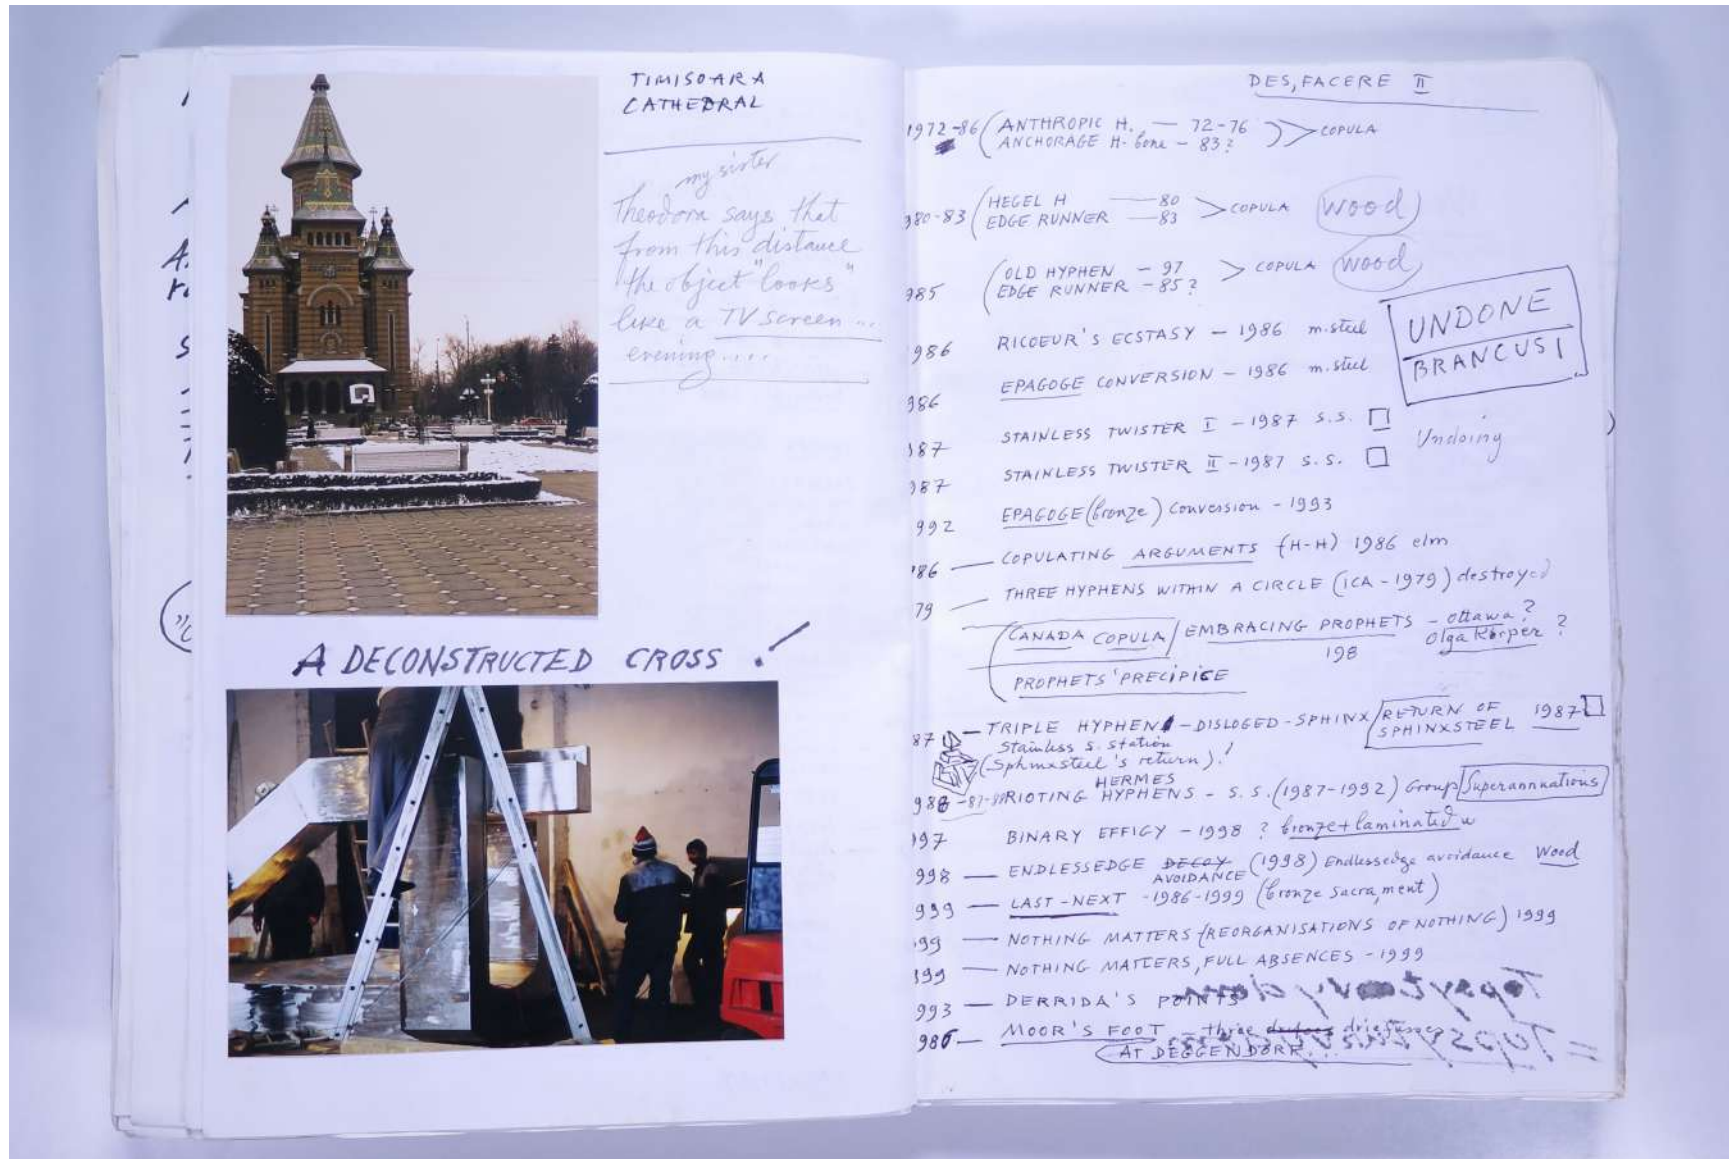 TIMISOARA
CATHEDRAL
my sister
Theodora says that
from this distance
the object "looks"
like a TV screen ...
evening....
A DECONSTRUCTED CROSS !
DES,FACERE II
1972-86 (ANTHROPIC H. — 72-76
ANCHORAGE H-bone - 83?) > COPULA
980-83 (HEGEL H — 80
EDGE RUNNER — 83 > COPULA (wood)
985 (OLD HYPHEN - 97
EDGE RUNNER - 85? > COPULA (wood)
UNDONE
BRANCUSI
986 RICOEUR'S ECSTASY - 1986 m.steel
986 EPAGOGE CONVERSION - 1986 m.steel
987 STAINLESS TWISTER I - 1987 S.S.
Undoing
987 STAINLESS TWISTER II - 1987 S.S.
992 EPAGOGE (bronze) Conversion - 1993
'86 — COPULATING ARGUMENTS (H-H) 1986 elm
79 — THREE HYPHENS WITHIN A CIRCLE (ICA - 1979) destroyed
(CANADA COPULA / EMBRACING PROPHETS - Ottawa ?
198 Olga Korper ?
PROPHETS' PRECIPICE
87 — TRIPLE HYPHEN - DISLOGED - SPHINX / RETURN OF SPHINXSTEEL 1987
Stainless s. station
(Sphinxsteel's return) !
HERMES
988-87- RIOTING HYPHENS - S.S. (1987-1992) Group Superannuations
997 BINARY EFFIGY - 1998 ? bronze + laminated w
998 — ENDLESSEDGE DECOY (1998) Endlessedge avoidance Wood
AVOIDANCE
999 — LAST-NEXT - 1986-1999 (bronze Sacra,ment)
999 — NOTHING MATTERS (REORGANISATIONS OF NOTHING) 1999
999 — NOTHING MATTERS, FULL ABSENCES - 1999
993 — DERRIDA'S POINTS
986 — MOOR'S FOOT - three
AT DEGGENDORF